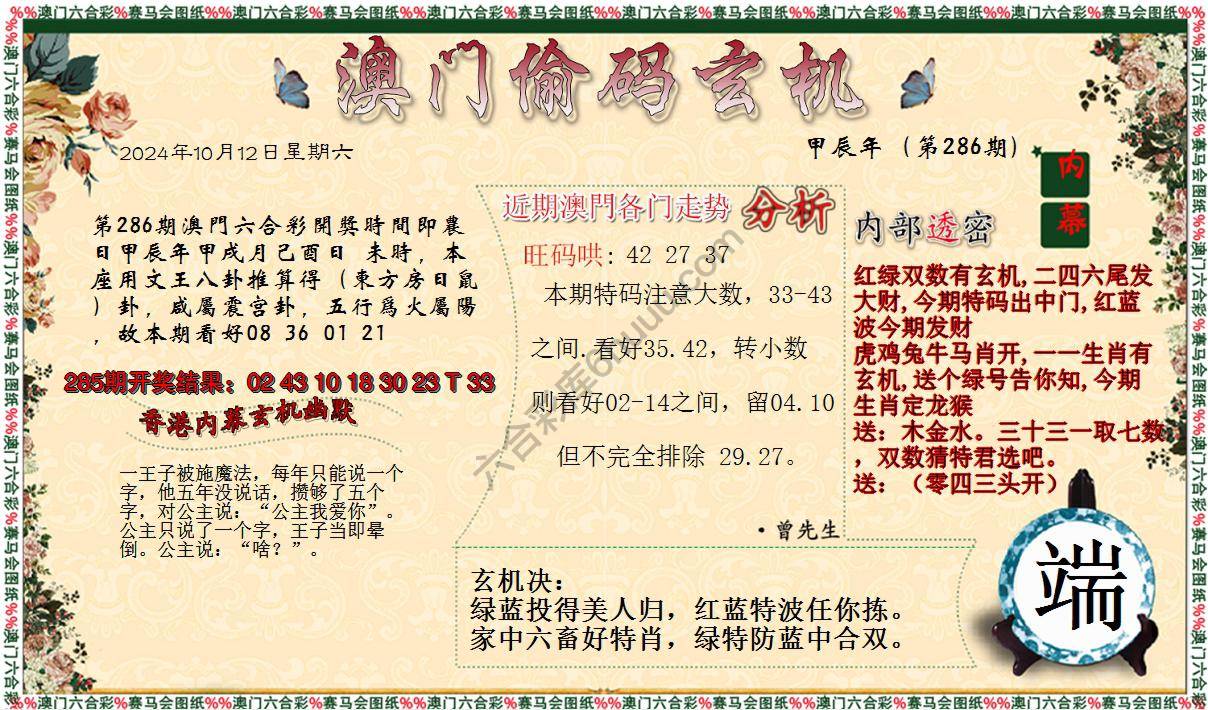 %%澳门六合彩%赛马会图纸%%澳门六合彩%赛马会图纸%%澳门六合彩%赛马会图纸%%澳门六合彩%赛马会图纸%%澳门六合彩%赛马会图纸%%澳门六合彩%赛马会图纸
澳门偷码玄机
2024年10月12日星期六
甲辰年（第286期）
内幕
第286期澳門六合彩開獎時間即農
日甲辰年甲戌月己酉日 未時，本
座用文王八卦推算得（東方房日鼠
）卦，咸屬震宫卦，五行爲火屬陽
，故本期看好08 36 01 21
285期开奖结果：02 43 10 18 30 23 T 33
香港内幕玄机幽默
一王子被施魔法，每年只能说一个
字，他五年没说话，攒够了五个
字，对公主说：“公主我爱你”。
公主只说了一个字，王子当即晕
倒。公主说：“啥？”。
近期澳門各门走势 分析
旺码哄: 42 27 37
本期特码注意大数，33-43
之间.看好35.42，转小数
则看好02-14之间，留04.10
但不完全排除 29.27。
·曾先生
内部透密
红绿双数有玄机,二四六尾发
大财,今期特码出中门,红蓝
波今期发财
虎鸡兔牛马肖开,一一生肖有
玄机,送个绿号告你知,今期
生肖定龙猴
送：木金水。三十三一取七数
，双数猜特君选吧。
送：（零四三头开）
玄机决：
绿蓝投得美人归，红蓝特波任你拣。
家中六畜好特肖，绿特防蓝中合双。
端
%%澳门六合彩%赛马会图纸%%澳门六合彩%赛马会图纸%%澳门六合彩%赛马会图纸%%澳门六合彩%赛马会图纸%%澳门六合彩%赛马会图纸%%澳门六合彩%赛马会图纸